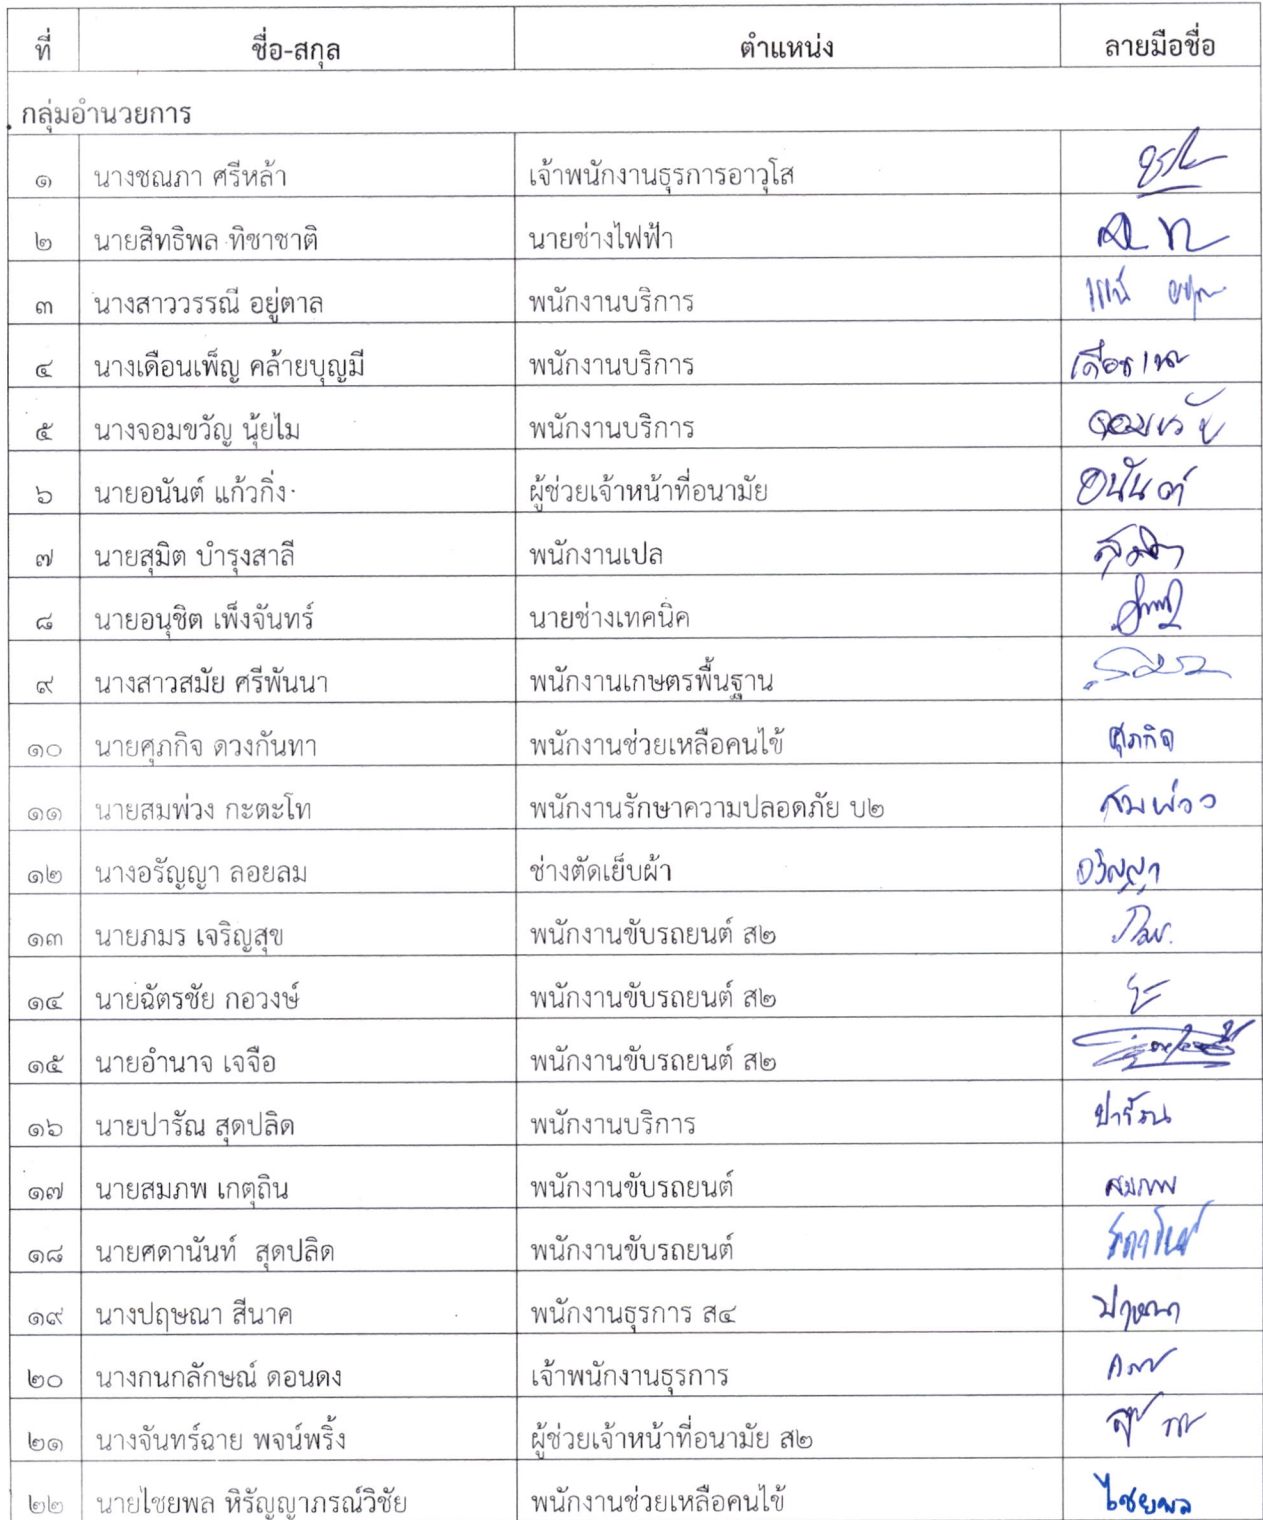 ที่ ชื่อ-สกุล ตำแหน่ง ลายมือชื่อ
กลุ่มอำนวยการ
๑ นางชณภา ศรีหล้า เจ้าพนักงานธุรการอาวุโส
๒ นายสิทธิพล ทิชาชาติ นายช่างไฟฟ้า
๓ นางสาววรรณี อยู่ตาล พนักงานบริการ
๔ นางเดือนเพ็ญ คล้ายบุญมี พนักงานบริการ
๕ นางจอมขวัญ นุ้ยไม พนักงานบริการ จอมขวัญ
๖ นายอนันต์ แก้วกิ่ง ผู้ช่วยเจ้าหน้าที่อนามัย อนันต์
๗ นายสุมิต บำรุงสาลี พนักงานเปล สุมิต
๘ นายอนุชิต เพ็งจันทร์ นายช่างเทคนิค
๙ นางสาวสมัย ศรีพันนา พนักงานเกษตรพื้นฐาน
๑๐ นายศุภกิจ ดวงกันทา พนักงานช่วยเหลือคนไข้ ศุภกิจ
๑๑ นายสมพ่วง กะตะโท พนักงานรักษาความปลอดภัย บ๒ สมพ่วง
๑๒ นางอรัญญา ลอยลม ช่างตัดเย็บผ้า อรัญญา
๑๓ นายภมร เจริญสุข พนักงานขับรถยนต์ ส๒ ภมร
๑๔ นายฉัตรชัย กอวงษ์ พนักงานขับรถยนต์ ส๒
๑๕ นายอำนาจ เจจือ พนักงานขับรถยนต์ ส๒
๑๖ นายปารัณ สุดปลิด พนักงานบริการ ปารัณ
๑๗ นายสมภพ เกตุถิน พนักงานขับรถยนต์ สมภพ
๑๘ นายศดานันท์ สุดปลิด พนักงานขับรถยนต์
๑๙ นางปฤษณา สีนาค พนักงานธุรการ ส๔ ปฤษณา
๒๐ นางกนกลักษณ์ ดอนดง เจ้าพนักงานธุรการ
๒๑ นางจันทร์ฉาย พจน์พริ้ง ผู้ช่วยเจ้าหน้าที่อนามัย ส๒
๒๒ นายไชยพล หิรัญญาภรณ์วิชัย พนักงานช่วยเหลือคนไข้ ไชยพล